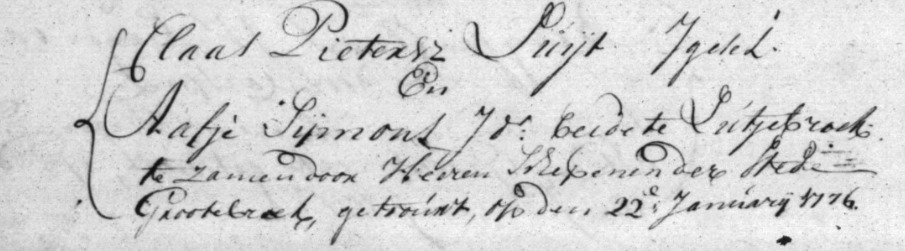 Claas Pietersz Luijt Jgesel:
En
Aafje Sijmons Jdr: beide te Lútjebroek.
te zamen door Heeren Schepenen der Stede
Grootebroek, getroúwt, op den 22e: Janúarij 1776.